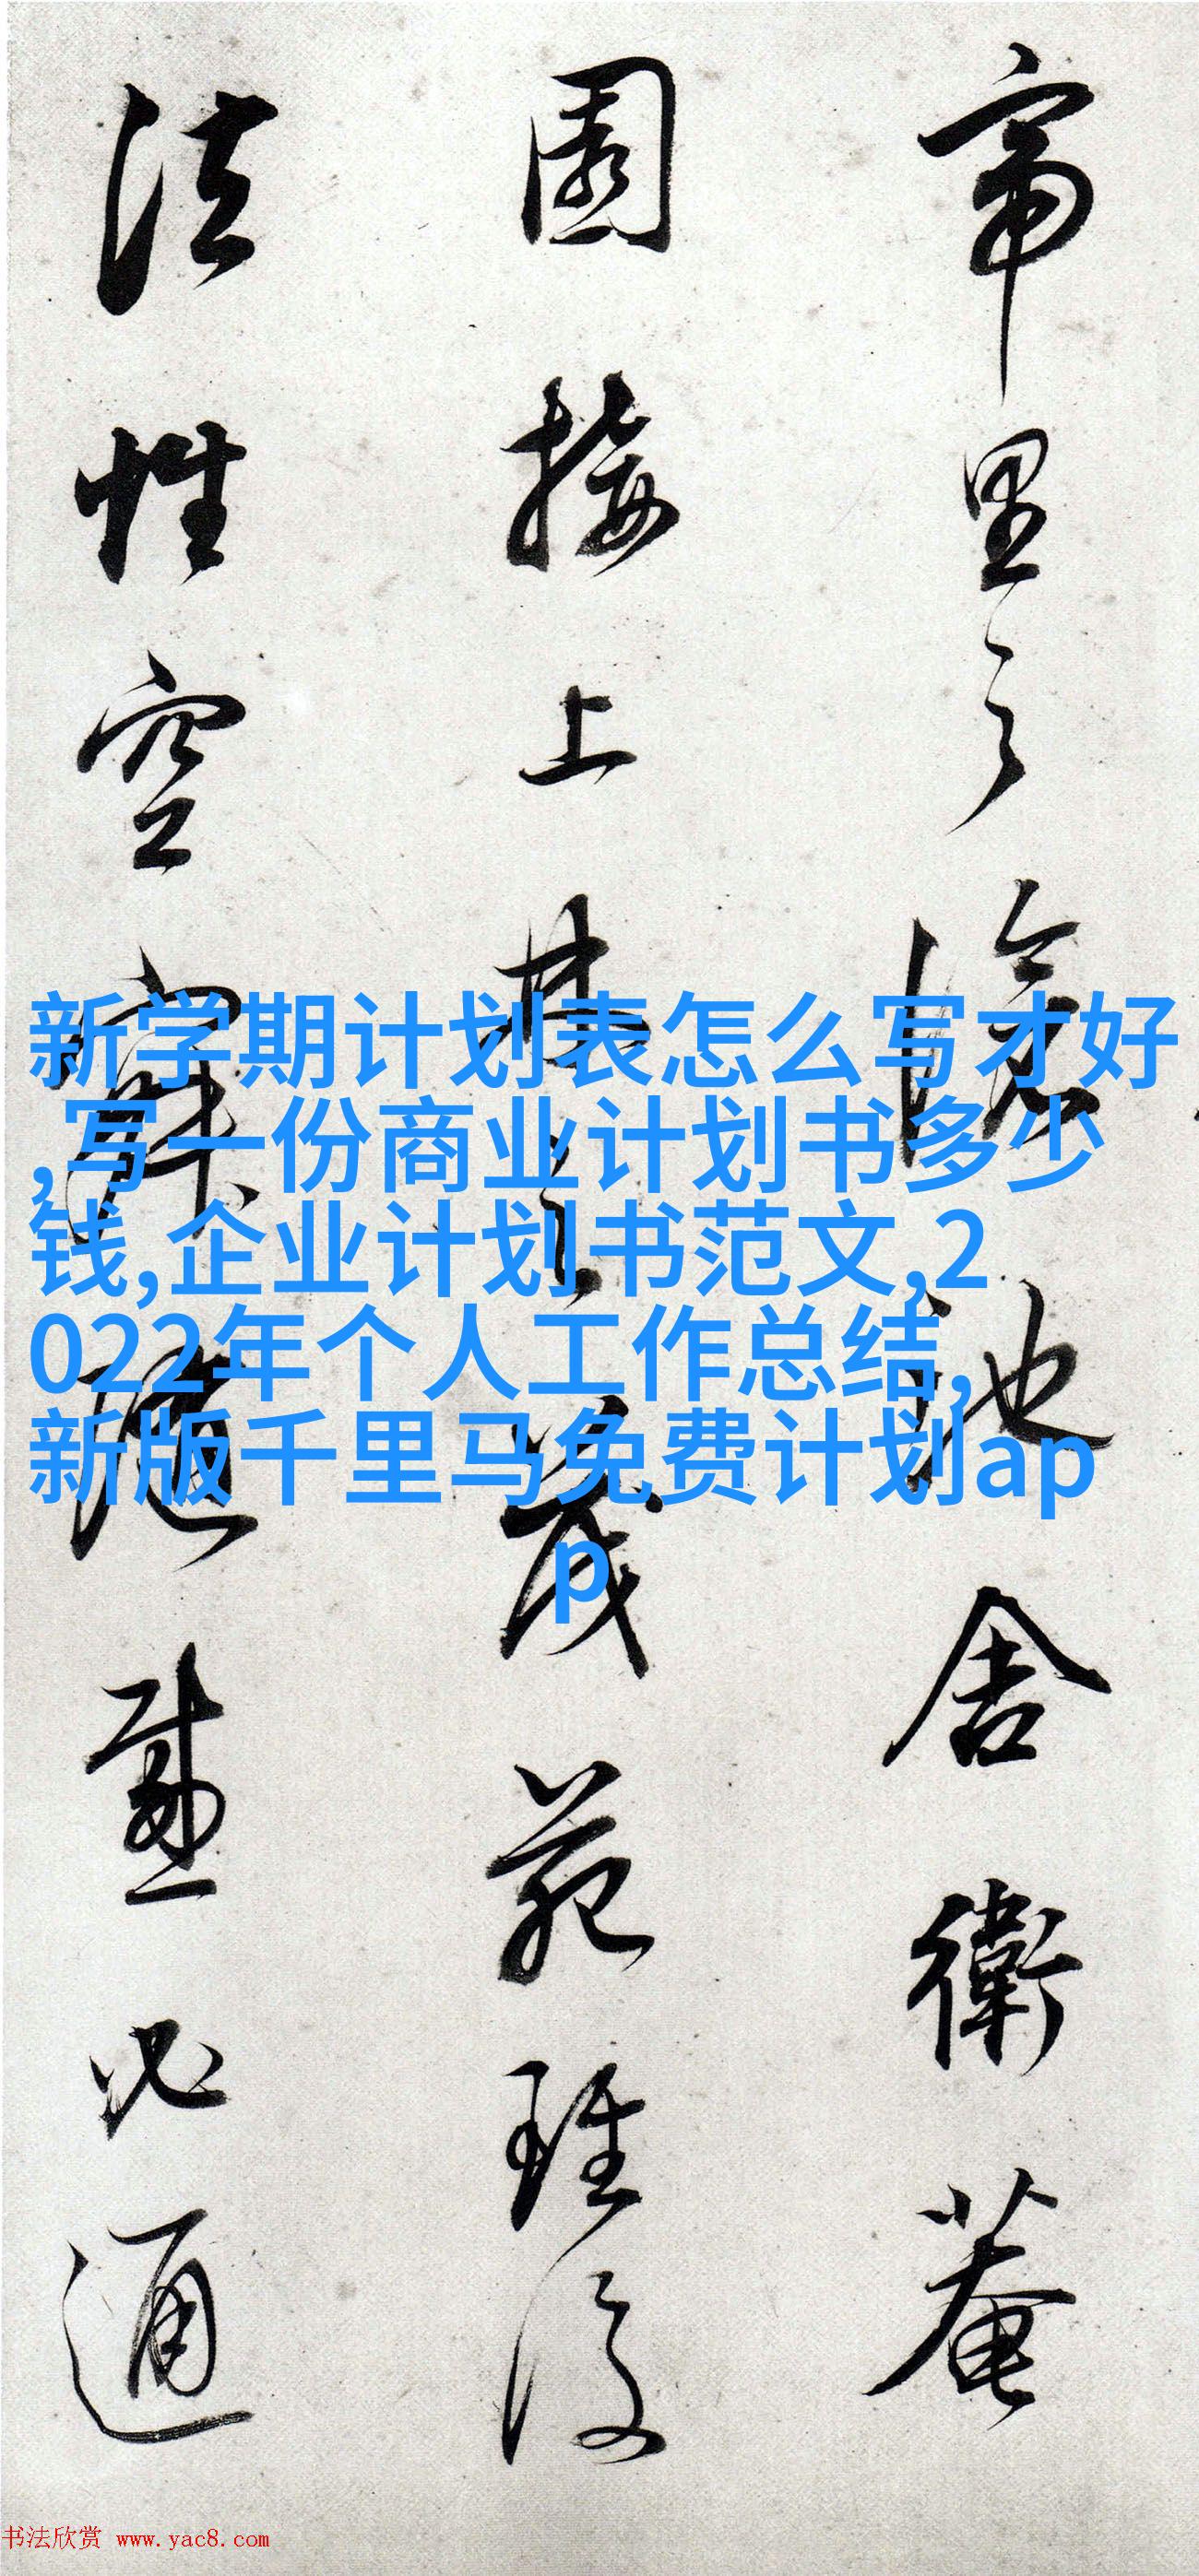 帝里之滄池舍衛菴
園接上林之茂苑雖復
法性空寂隨感必通
新学期计划表怎么写才好
,写一份商业计划书多少
钱,企业计划书范文,2
022年个人工作总结,
新版千里马免费计划ap
p
书法欣赏 www.yac8.com